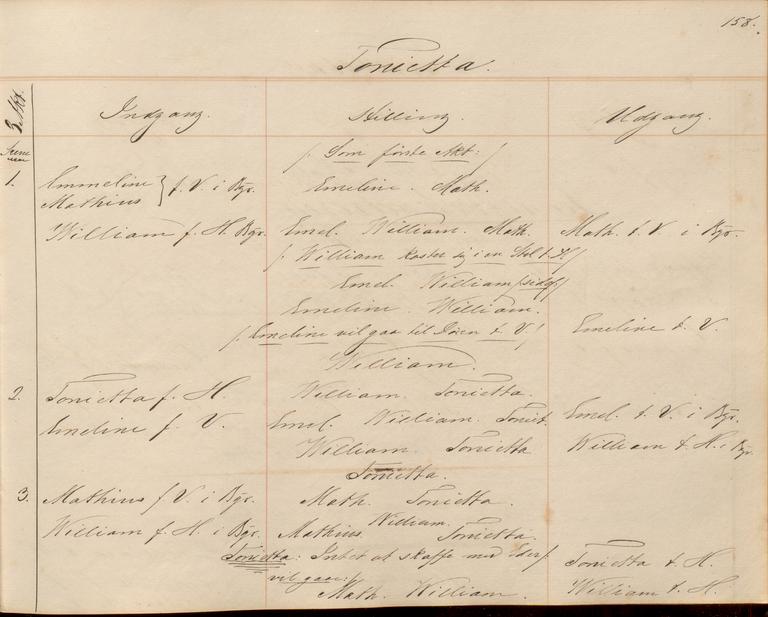 158.
Tonietta.
3 Akt.
Indgang. Stilling. Udgang.
Scene
/: Som første Akt :/
1. Emmeline } f. V. i Bgr. Emeline. Math.
Mathius
William f. H. Bgr. Emel. William. Math. Math. t. V. i Bgr.
/: William kaster sig i en Stol t. H :/
Emel. William /sidd/
Emeline. William.
/: Emeline vil gaa til Døren t. V. :/ Emeline t. V.
William.
2. Tonietta f. H. William. Tonietta.
Emeline f. V. Emel. William. Toniet. Emel. t. V. i Bgr.
William. Tonietta William t. H. i Bgr.
Tonietta.
3. Mathius f. V. i Bgr. Math. Tonietta.
William f. H. i Bgr. Mathius. William. Tonietta.
Tonietta: Intet at skaffe med Eder/ Tonietta t. H.
vil gaae:/
Math. William. William t. H.